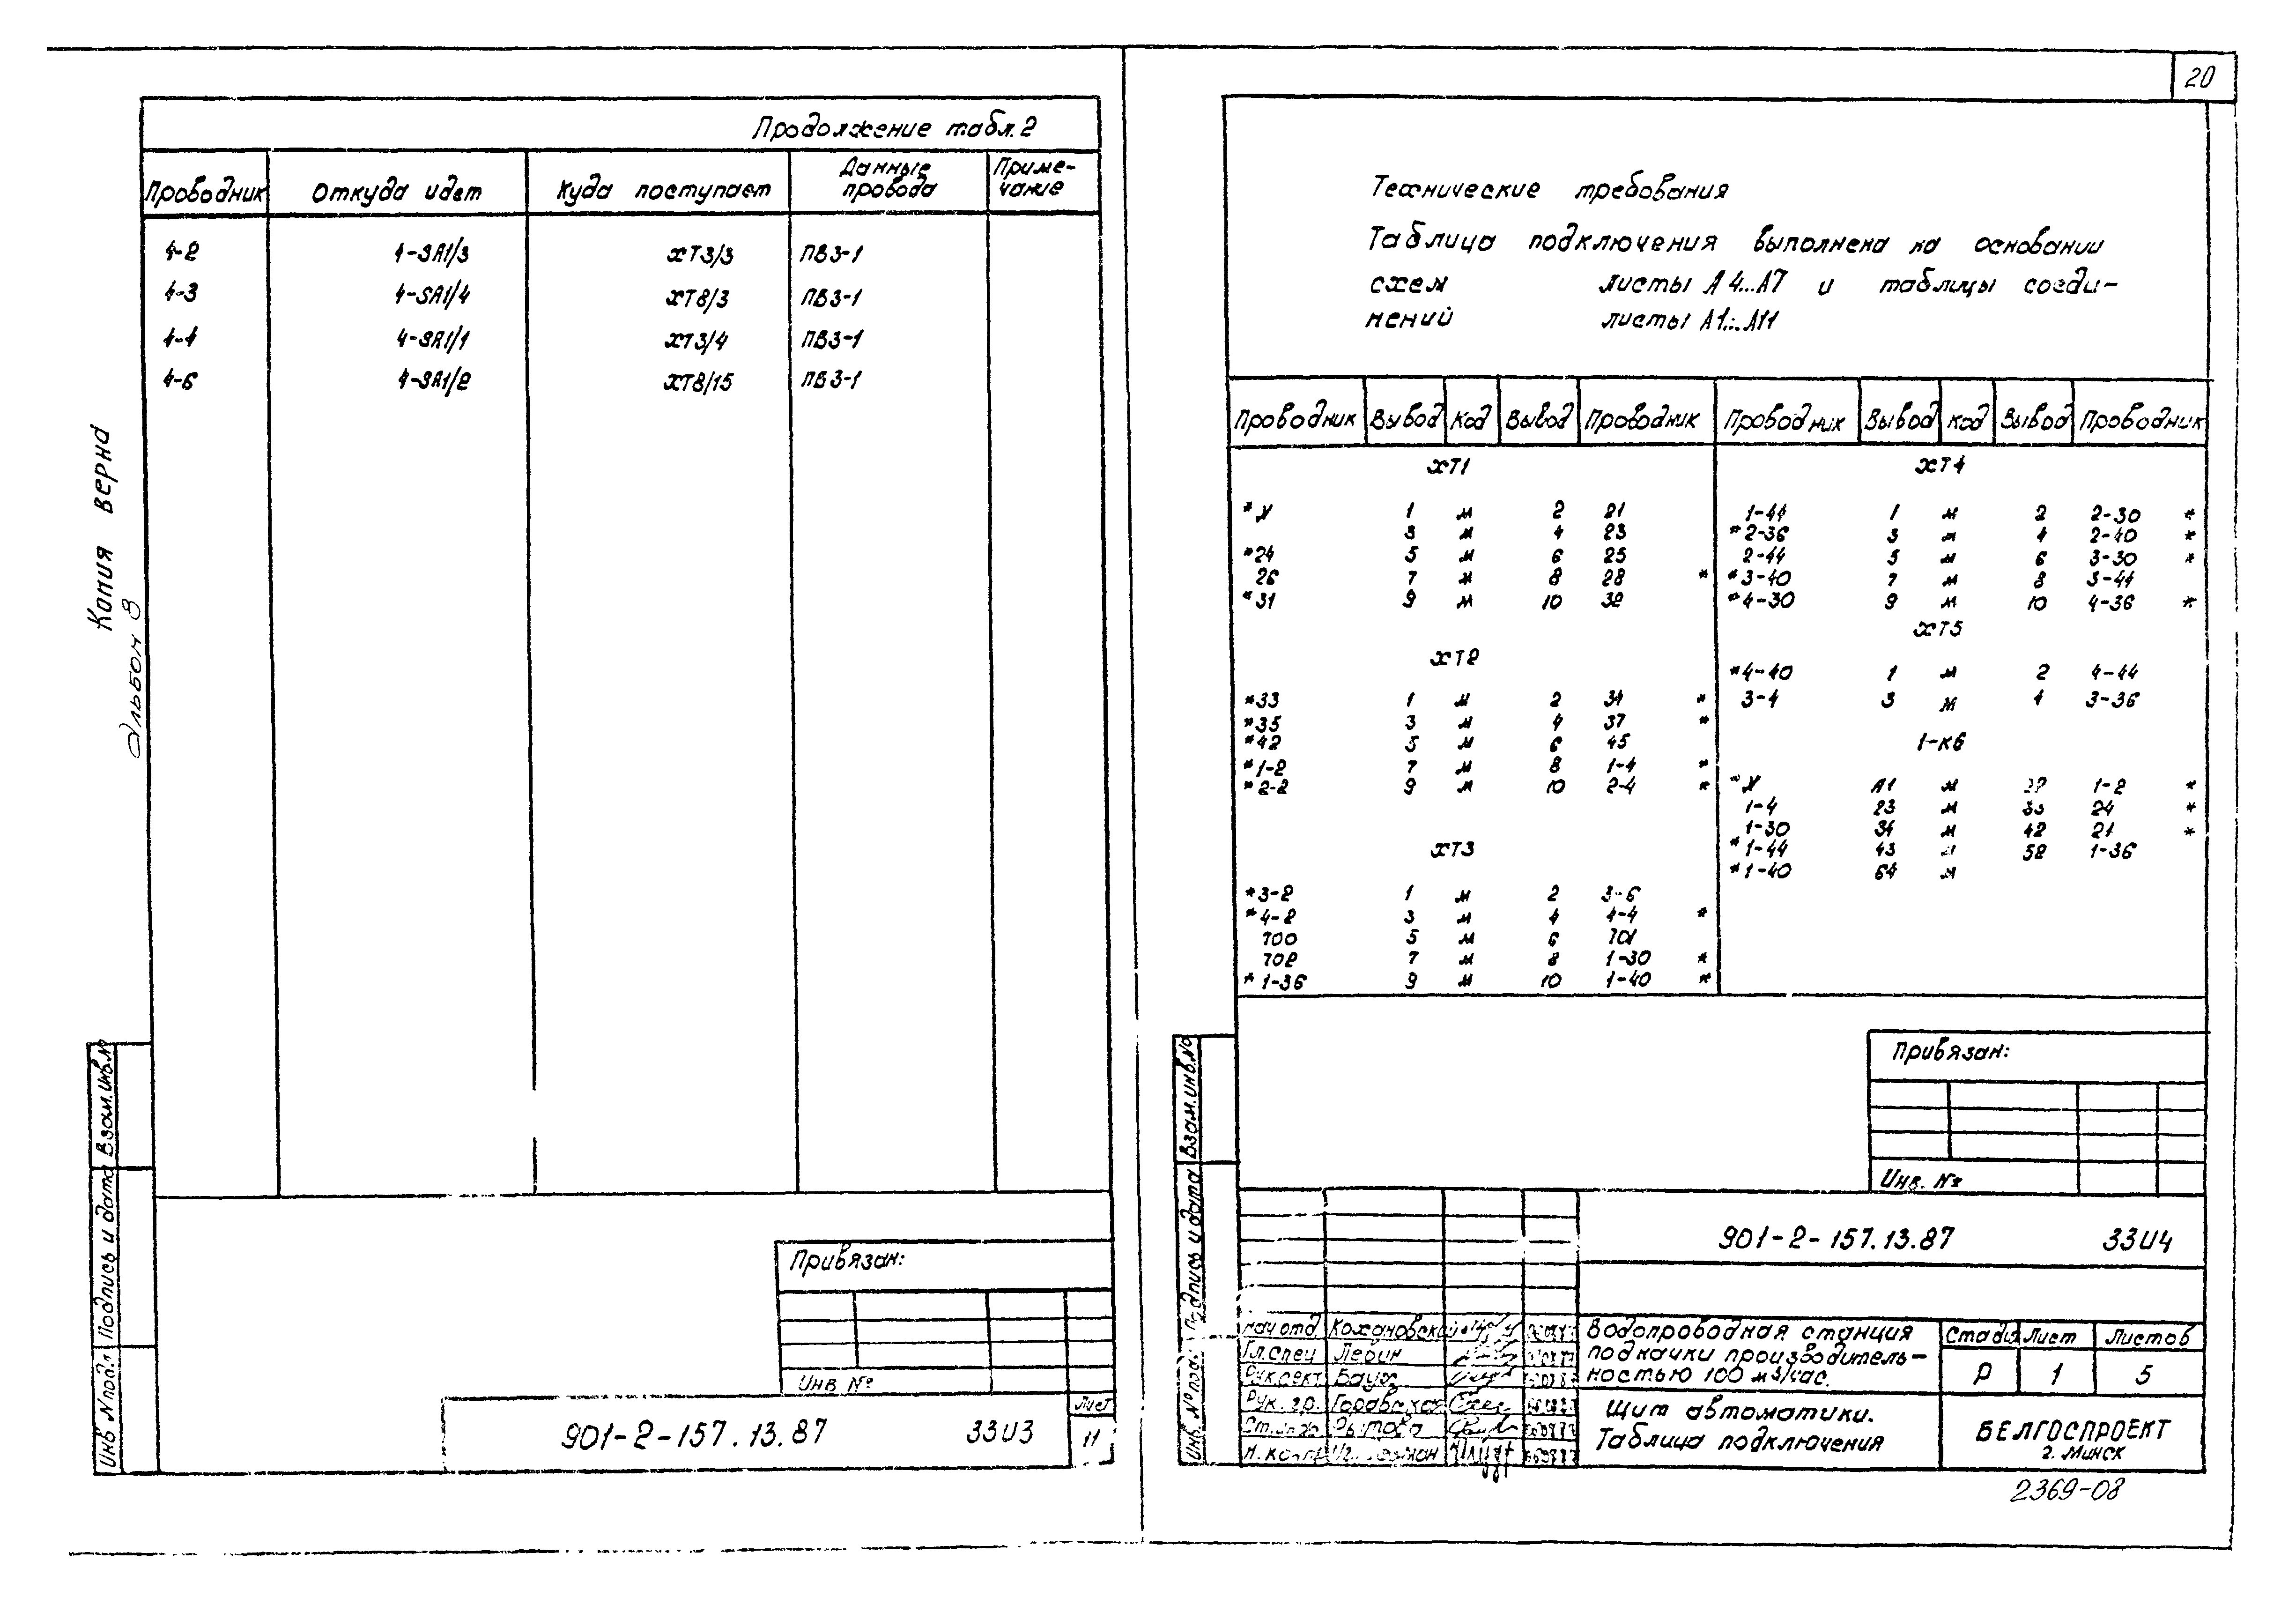 20
Продолжение табл. 2
Проводник Откуда идет Куда поступает Данные провода Приме-чание
4-2 4-SA1/3 XT3/3 ПВ3-1
4-3 4-SA1/4 XT8/3 ПВ3-1
4-4 4-SA1/1 XT3/4 ПВ3-1
4-6 4-SA1/2 XT8/15 ПВ3-1
Копия верна
Альбом 8
Взам. инв. №
Подпись и дата
Инв № подл
Привязан:
Инв №
901-2-157.13.87 ЭЭИ3
Лист
11
Технические требования
Таблица подключения выполнена на основании
схем листы А4...А7 и таблицы соеди-
нений листы А1...А11
Проводник Вывод Код Вывод Проводник Проводник Вывод Код Вывод Проводник
XT1
*N 1 м 2 21
3 м 4 23
*24 5 м 6 25
26 7 м 8 28 *
*31 9 м 10 32
XT2
*33 1 м 2 34 *
*35 3 м 4 37 *
*42 5 м 6 45
*1-2 7 м 8 1-4 *
*2-2 9 м 10 2-4 *
XT3
*3-2 1 м 2 3-6
*4-2 3 м 4 4-4 *
700 5 м 6 701
702 7 м 8 1-30 *
*1-36 9 м 10 1-40 *
XT4
1-44 1 м 2 2-30 *
*2-36 3 м 4 2-40 *
2-44 5 м 6 3-30 *
*3-40 7 м 8 3-44
*4-30 9 м 10 4-36 *
XT5
*4-40 1 м 2 4-44
3-4 3 м 4 3-36
1-К6
*N А1 м 22 1-2 *
1-4 23 м 33 24 *
1-30 34 м 42 21 *
*1-44 43 м 52 1-36
*1-40 64 м
Взам. инв. №
Подпись и дата
Инв. № подл
Привязан:
Инв. №
901-2-157.13.87 ЭЭИ4
Нач отд Кохановский
Гл. спец Левин
Рук. сект. Баух
Рук. гр.
Ст. инж Рытова
Н. контр
Водопроводная станция
подкачки производитель-
ностью 100 м3/час.
Стадия Лист Листов
Р 1 5
Щит автоматики.
Таблица подключения
БЕЛГОСПРОЕКТ
г. Минск
2369-08